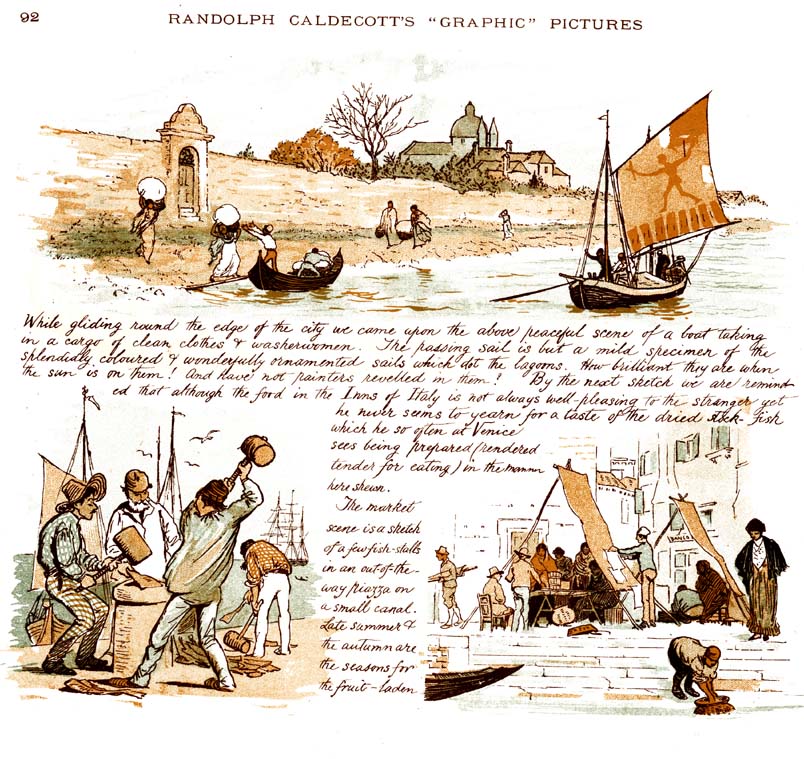 92
RANDOLPH CALDECOTT'S "GRAPHIC" PICTURES
While gliding round the edge of the city we came upon the above peaceful scene of a boat taking
in a cargo of clean clothes & washerwomen. The passing sail is but a mild specimen of the
splendidly coloured & wonderfully ornamented sails which dot the lagoons. How brilliant they are when
the sun is on them! And have not painters revelled in them! By the next sketch we are remind-
ed that although the food in the Inns of Italy is not always well-pleasing to the stranger yet
he never seems to yearn for a taste of the dried stock-fish
which he so often at Venice
sees being prepared (rendered
tender for eating) in the manner
here shewn.
The market
scene is a sketch
of a few fish-stalls
in an out-of-the-
way piazza on
a small canal.
Late summer &
the autumn are
the seasons for
the fruit-laden